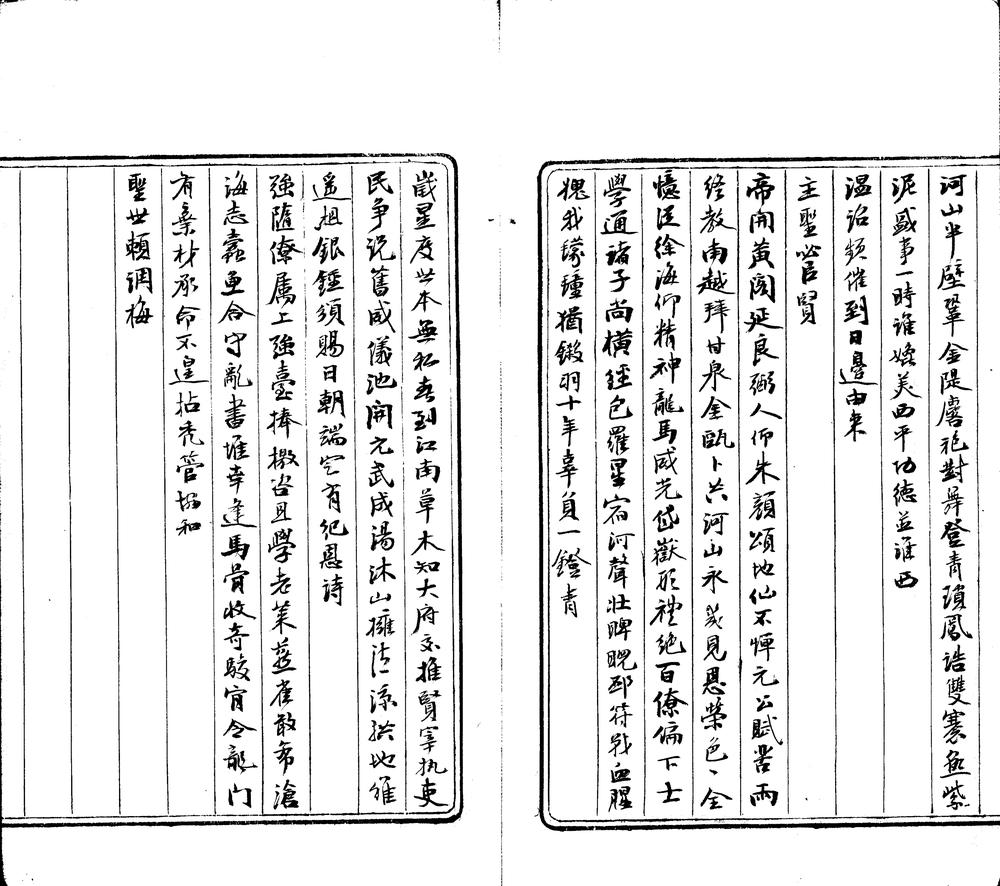 河山半壁鞏金隄虜祂對舞登青瑣鳳誥雙褰魚紫
泥盛事一時誰媲美西平功德並涯西
温詔頻催到日邊由来
主聖必官賢
帝開黃閣延良弼人仰朱顏頌地仙不憚元公賦苦雨
終教南越拜甘泉金甌卜共河山永羙見恩榮色〻全
憶從徐海仰精神龍馬威光岱嶽形禮絶百僚偏下士
學通諸子尚橫經包羅星宿河聲壯睥睨邳符戰血腥
媿我蹣躔猶鎩羽十年辜負一鐙青
歲星度世本無私春到江南草木知大府交推賢宰執吏
民争說舊威儀池開元武成湯沐山擁清涼拱地維
遥想銀鍾須賜日朝端定有纪恩詩
強隨僚屬上強臺捧檄咨且學老萊燕雀敢希滄
海志蠹魚合守亂書堆幸逢馬骨收奇駿宵令龍门
有棄材承命不遑拈秃管協和
聖世賴調梅